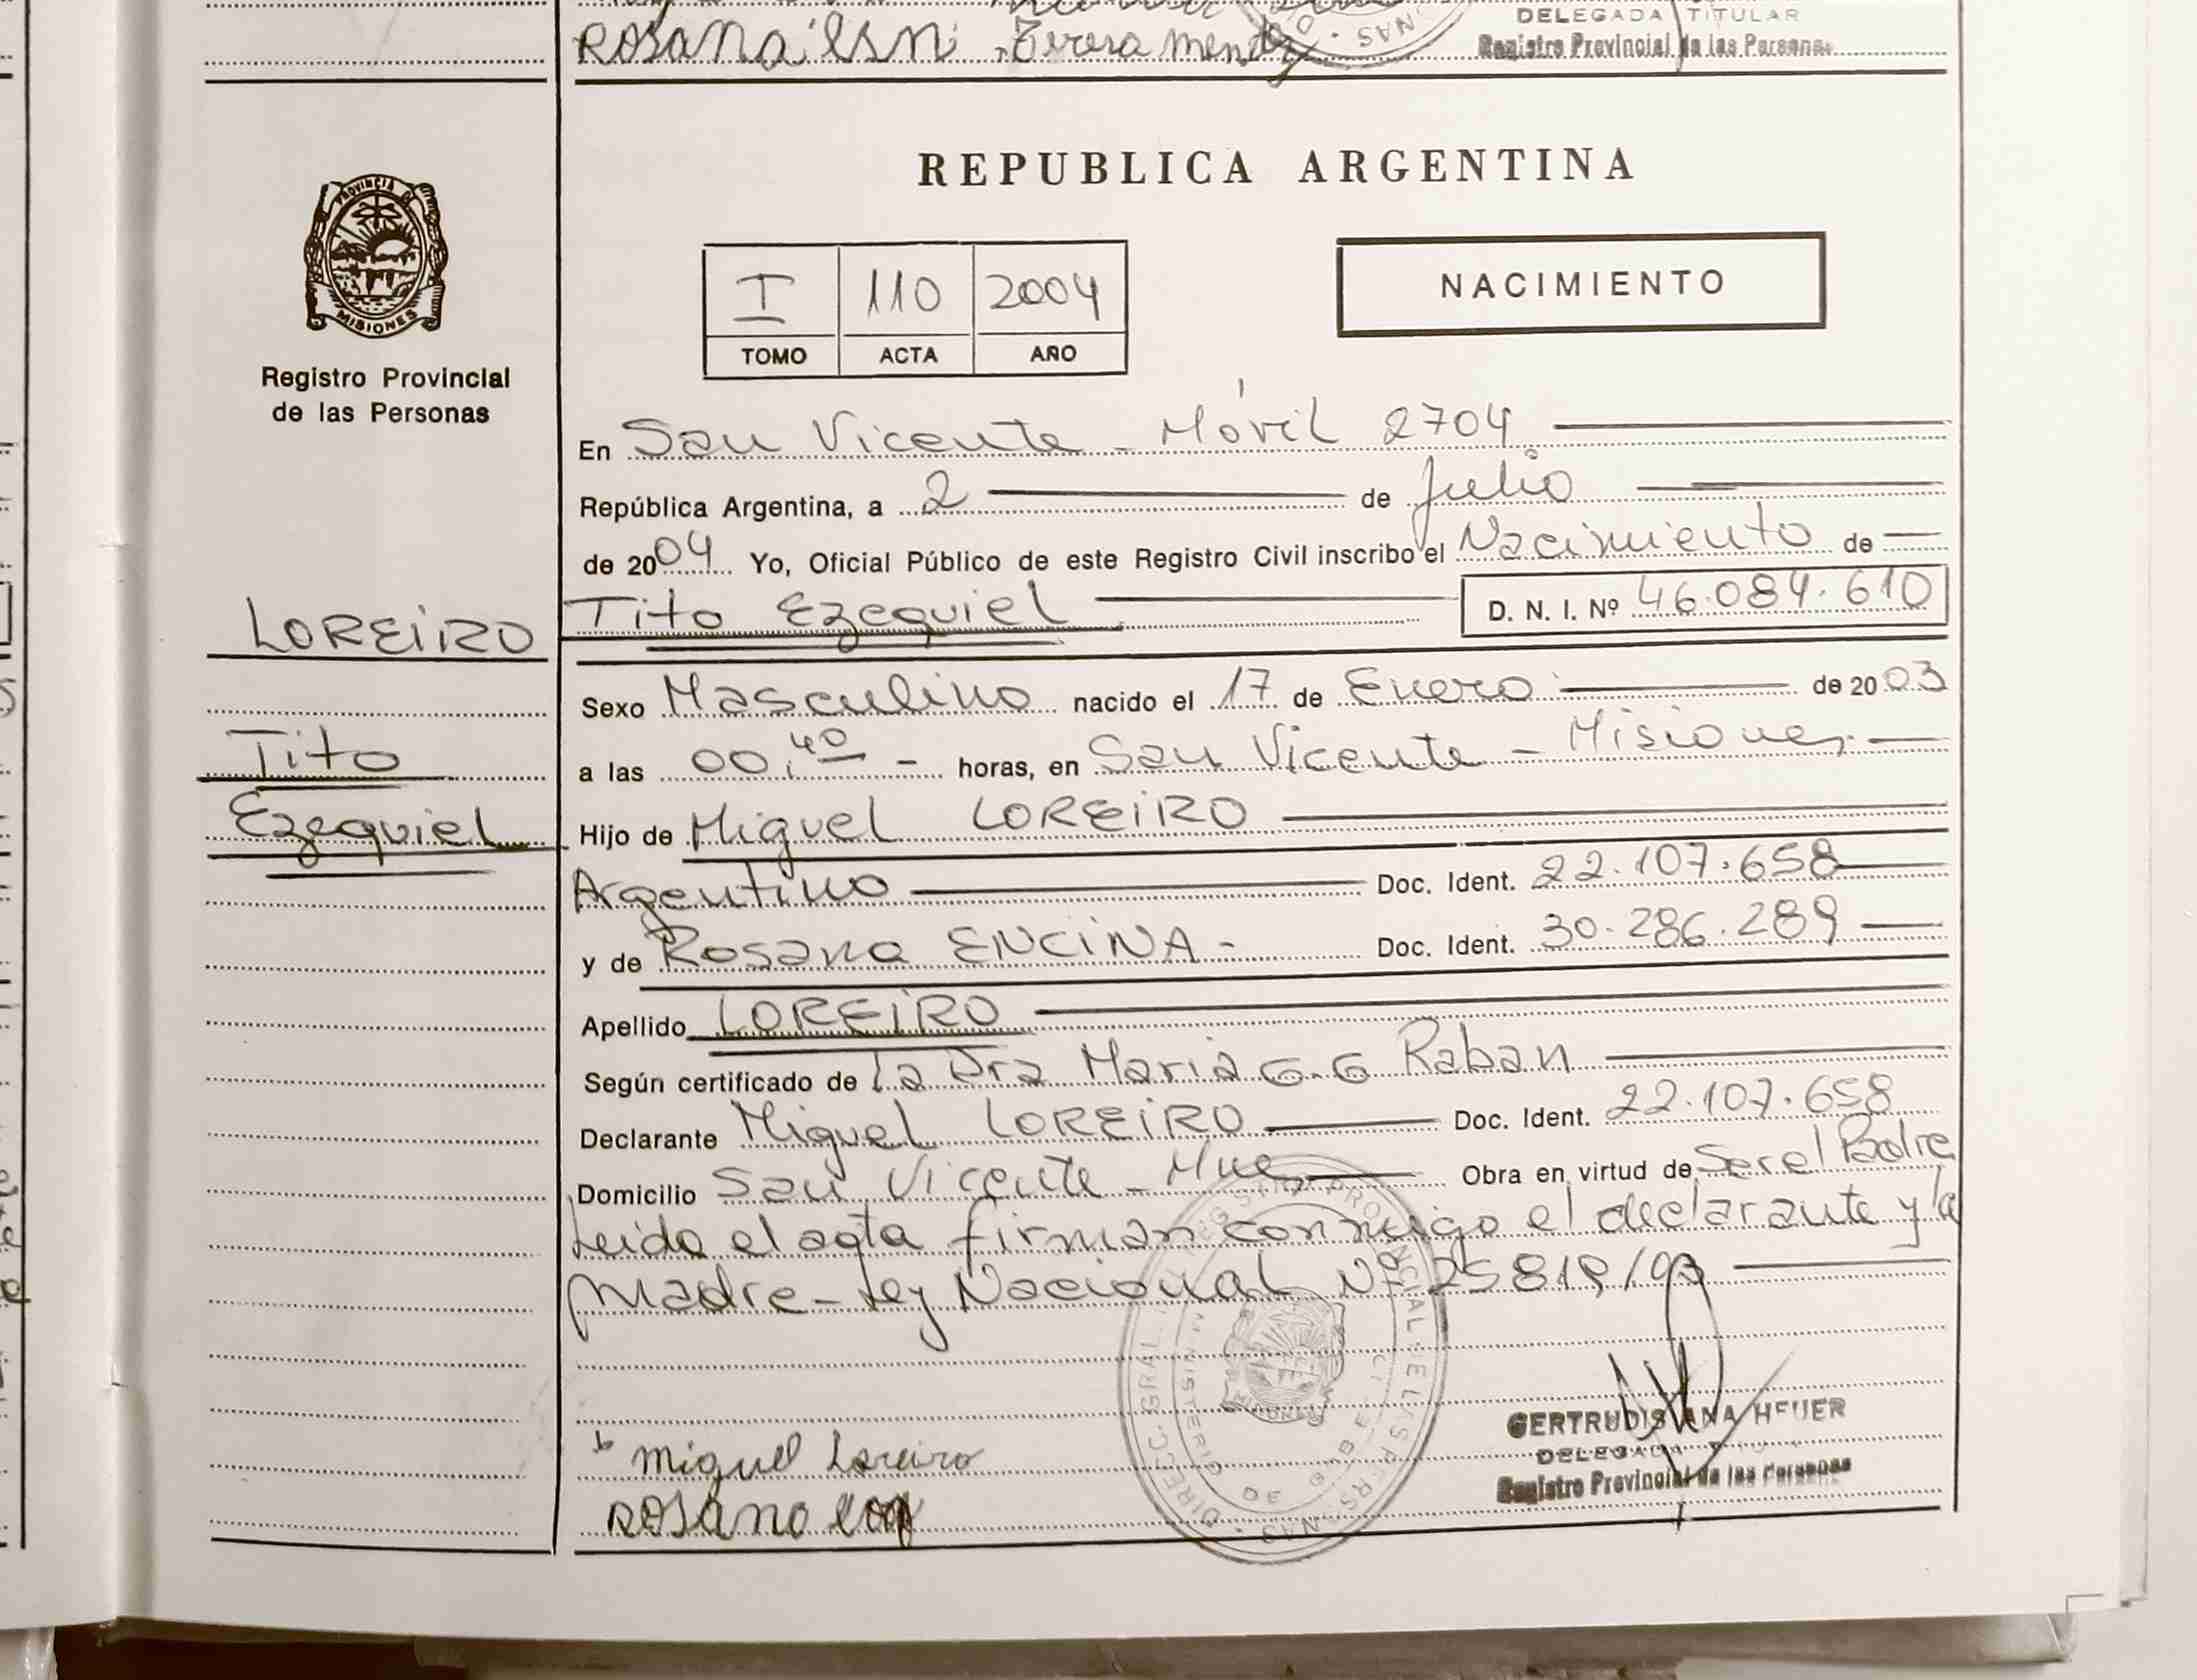 Rosana Teresa
DELEGADA TITULAR
Registro Provincial de las Personas
PROVINCIA DE
MISIONES
Registro Provincial
de las Personas
REPUBLICA ARGENTINA
I 110 2004
TOMO ACTA AÑO
NACIMIENTO
En San Vicente - Móvil 2704
República Argentina, a 2 de Julio
de 2004 Yo, Oficial Público de este Registro Civil inscribo el Nacimiento de
LOREIRO Tito Ezequiel D. N. I. Nº 46.084.610
Sexo Masculino nacido el 17 de Enero de 2003
Tito
a las 00,40 - horas, en San Vicente - Misiones
Ezequiel
Hijo de Miguel LOREIRO
Argentino Doc. Ident. 22.107.658
y de Rosana ENCINA - Doc. Ident. 30.286.289
Apellido LOREIRO
Según certificado de la Dra Maria G. G Raban
Declarante Miguel LOREIRO Doc. Ident. 22.107.658
Domicilio San Vicente - Mnes Obra en virtud de Ser el Padre
Leida el acta firman conmigo el declarante y la
madre - Ley Nacional Nº 25819/03
DIREC. GRAL. REGISTRO PROVINCIAL DE LAS PERSONAS
MINISTERIO DE GOBIERNO
MISIONES
GERTRUDIS ANA HEUER
DELEGADA
Registro Provincial de las Personas
Miguel Loreiro